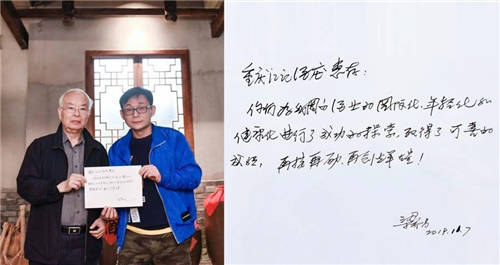 重庆江记酒庄惠存：
你们为我国白酒业的国际化、年轻化和
健康化进行了成功的探索，取得了可喜的
成绩，再接再励，再创辉煌！
2019.11.7